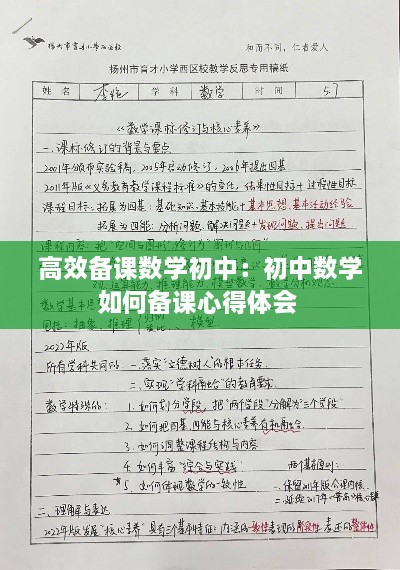 扬州市育才小学西区校
和而不同,仁者爱人
扬州市育才小学西区校教学反思专用稿纸
姓名 李悦 学科 数学 时间 5.7
《数学课标修订与核心素养》
一、课标修订的背景与要点
2001年颁布实验稿,2005年启动修订,2006年提出四基
2011年版《义务教育数学课程标准》的变化,结果性目标+过程性目标
课程目标:拓展为四基:基础知识、基本技能+基本思想、基本活动经验
拓展为四能:分析问题、解决问题+发现问题、提出问题
高效备课数学初中:初中数学
如何备课心得体会
2022年版
所有学科共同的 一、落实"立德树人"的根本任务
二、实现"学科育人"的教育要求
数学特殊的: 1.如何划分学段,把"两个学段"分解为三个学段
2.如何把四基、四能与核心素养有机结合
3.如何调整课程结构与内容
4.如何丰富"综合与实践"
两个基本原则:
5.如何体现数学的一致性
一、保留2011年版合理内核
二、理解与表达
2022年版发展"核心素养"具有三个基本特征:内涵的一致性表现的阶段性表述的整体性